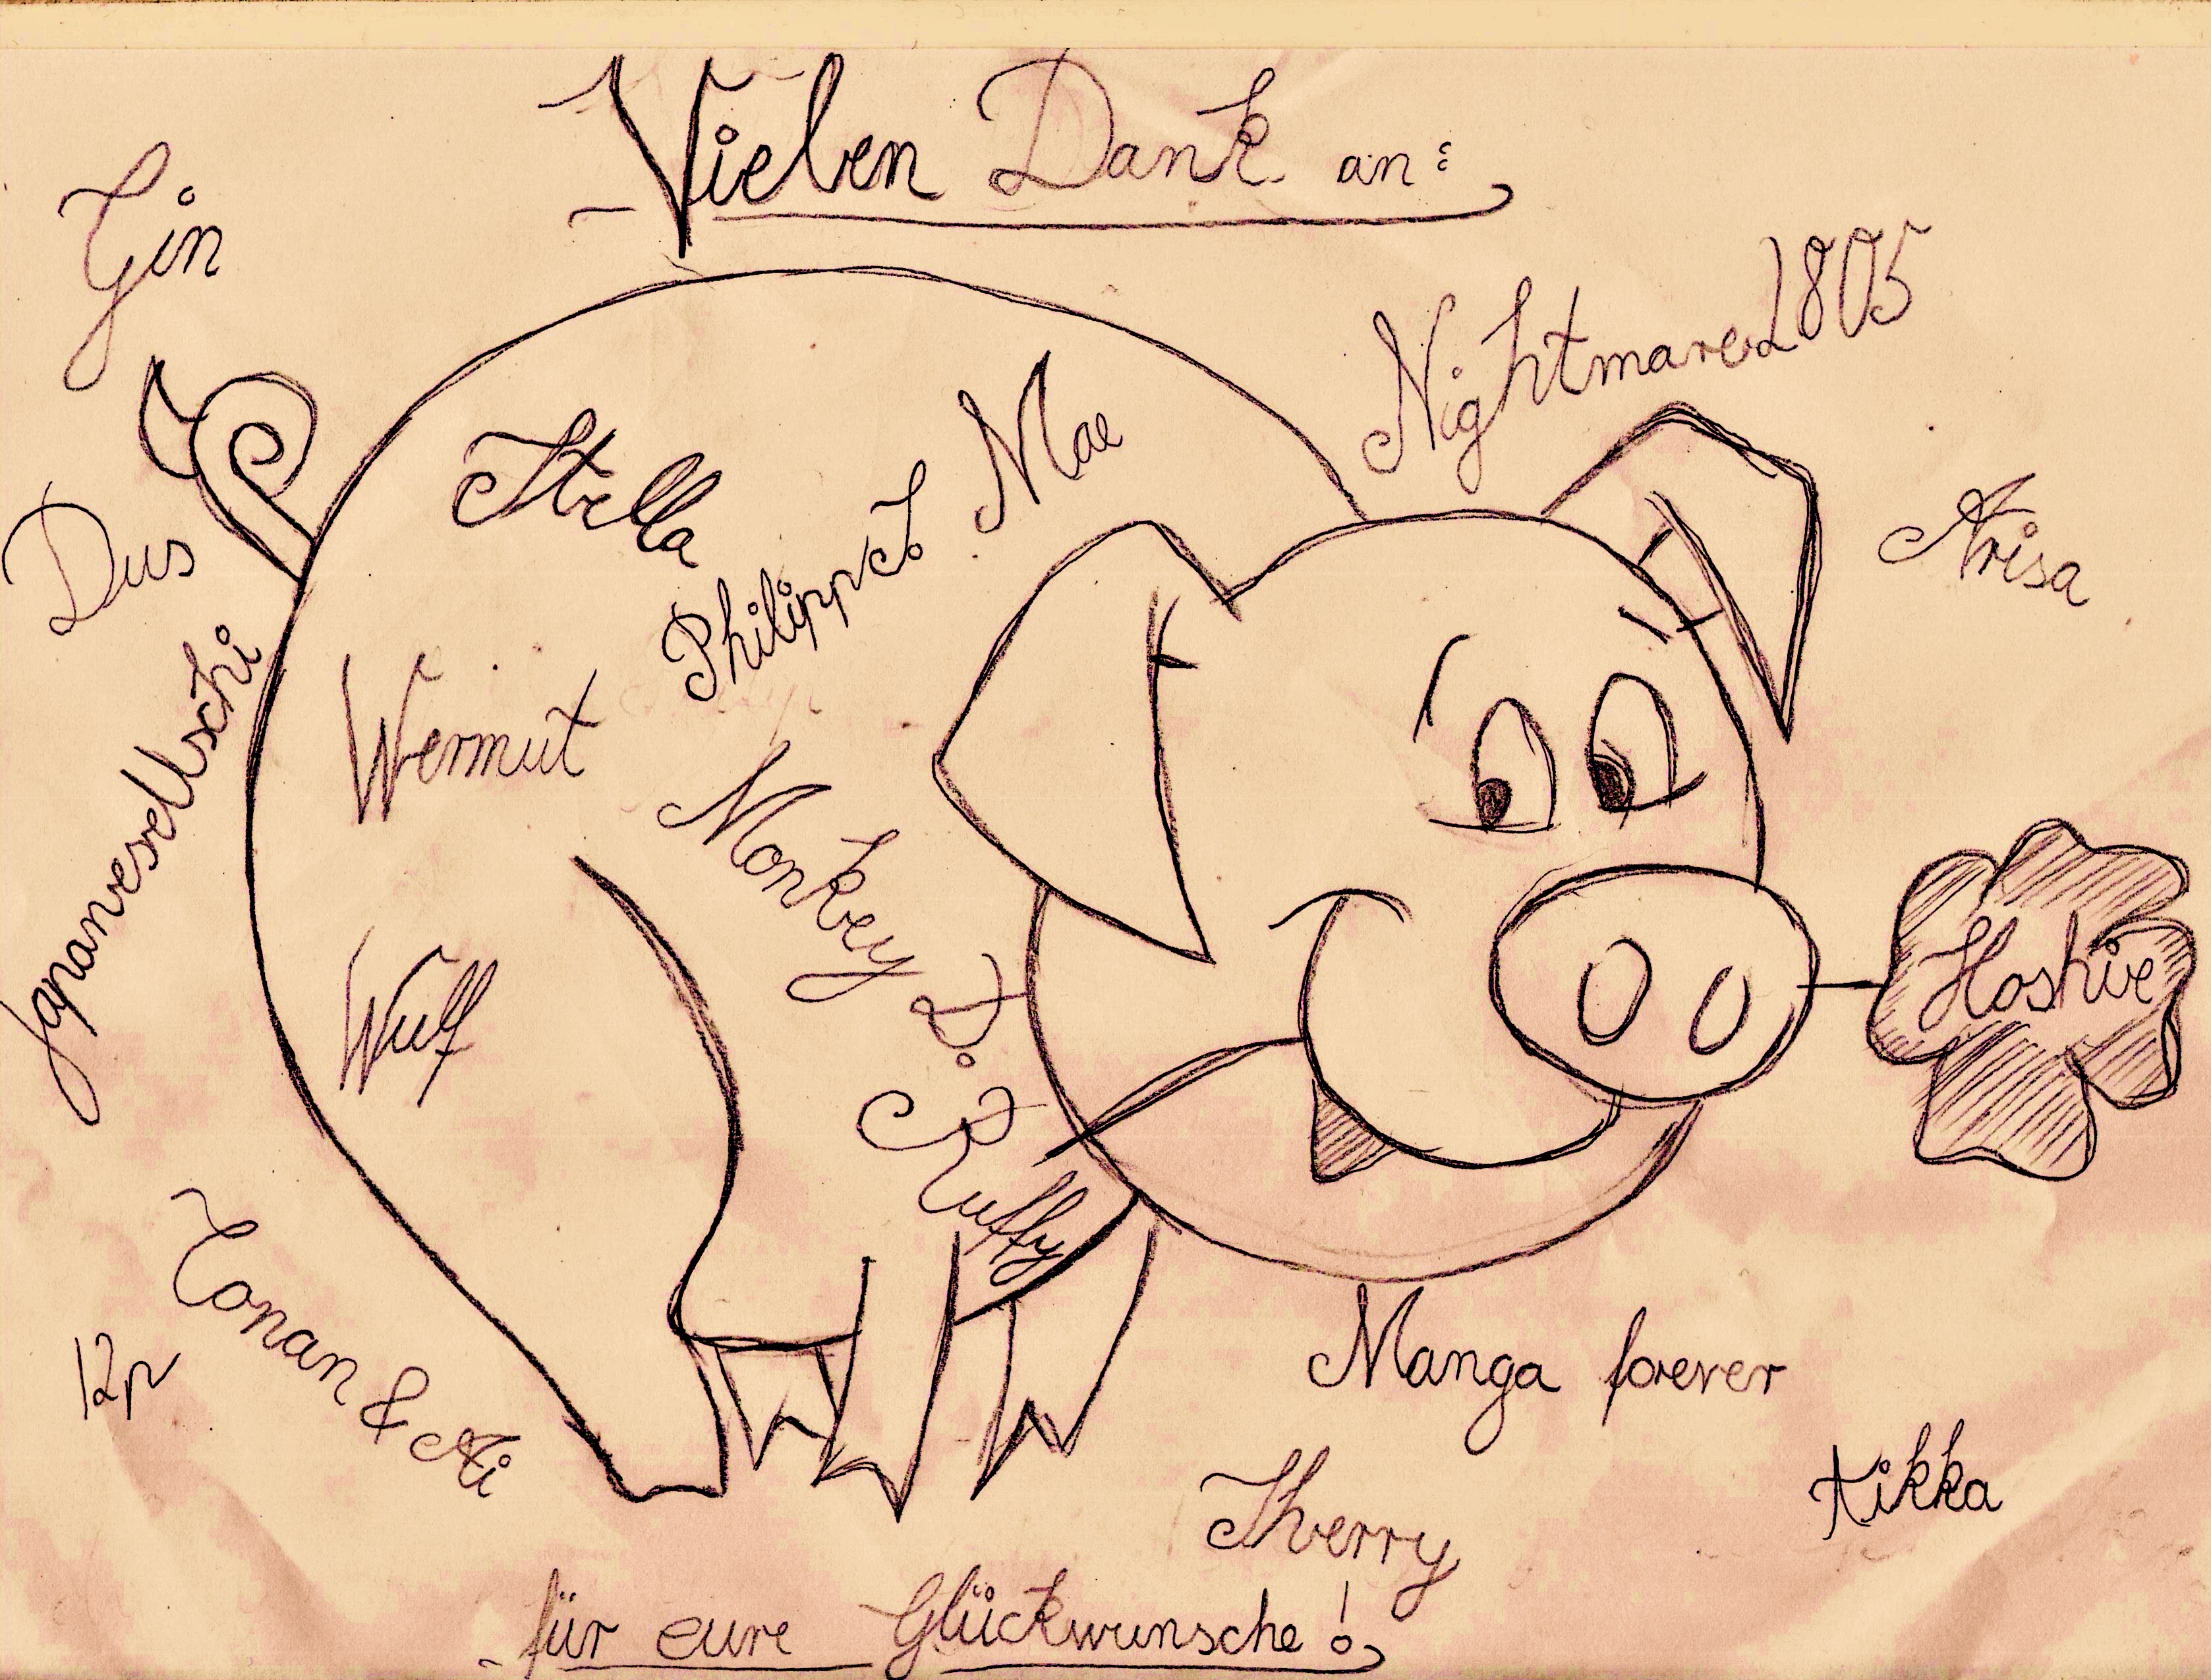 Vielen Dank an:
Gin
Nightmare1805
Mae
Stella
Philipp
Arisa
Dus
Wermut
Monkey D. Ruffy
Hoshie
Wulf
Conan & Ai
Manga forever
Kikka
für eure Glückwunsche!